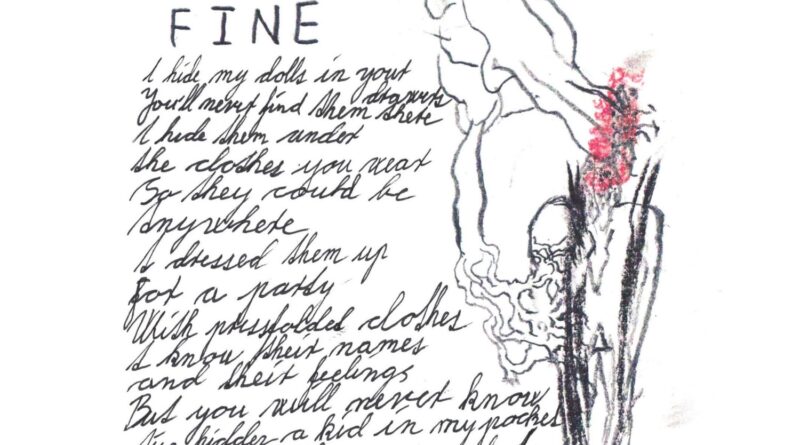 FINE
I hide my dolls in your
drawers
You'll never find them there
I hide them under
the clothes you wear
So they could be
anywhere
I dressed them up
For a party
With pressfolded clothes
I know their names
and their feelings
But you will never know
I've hidden a kid in my pocket